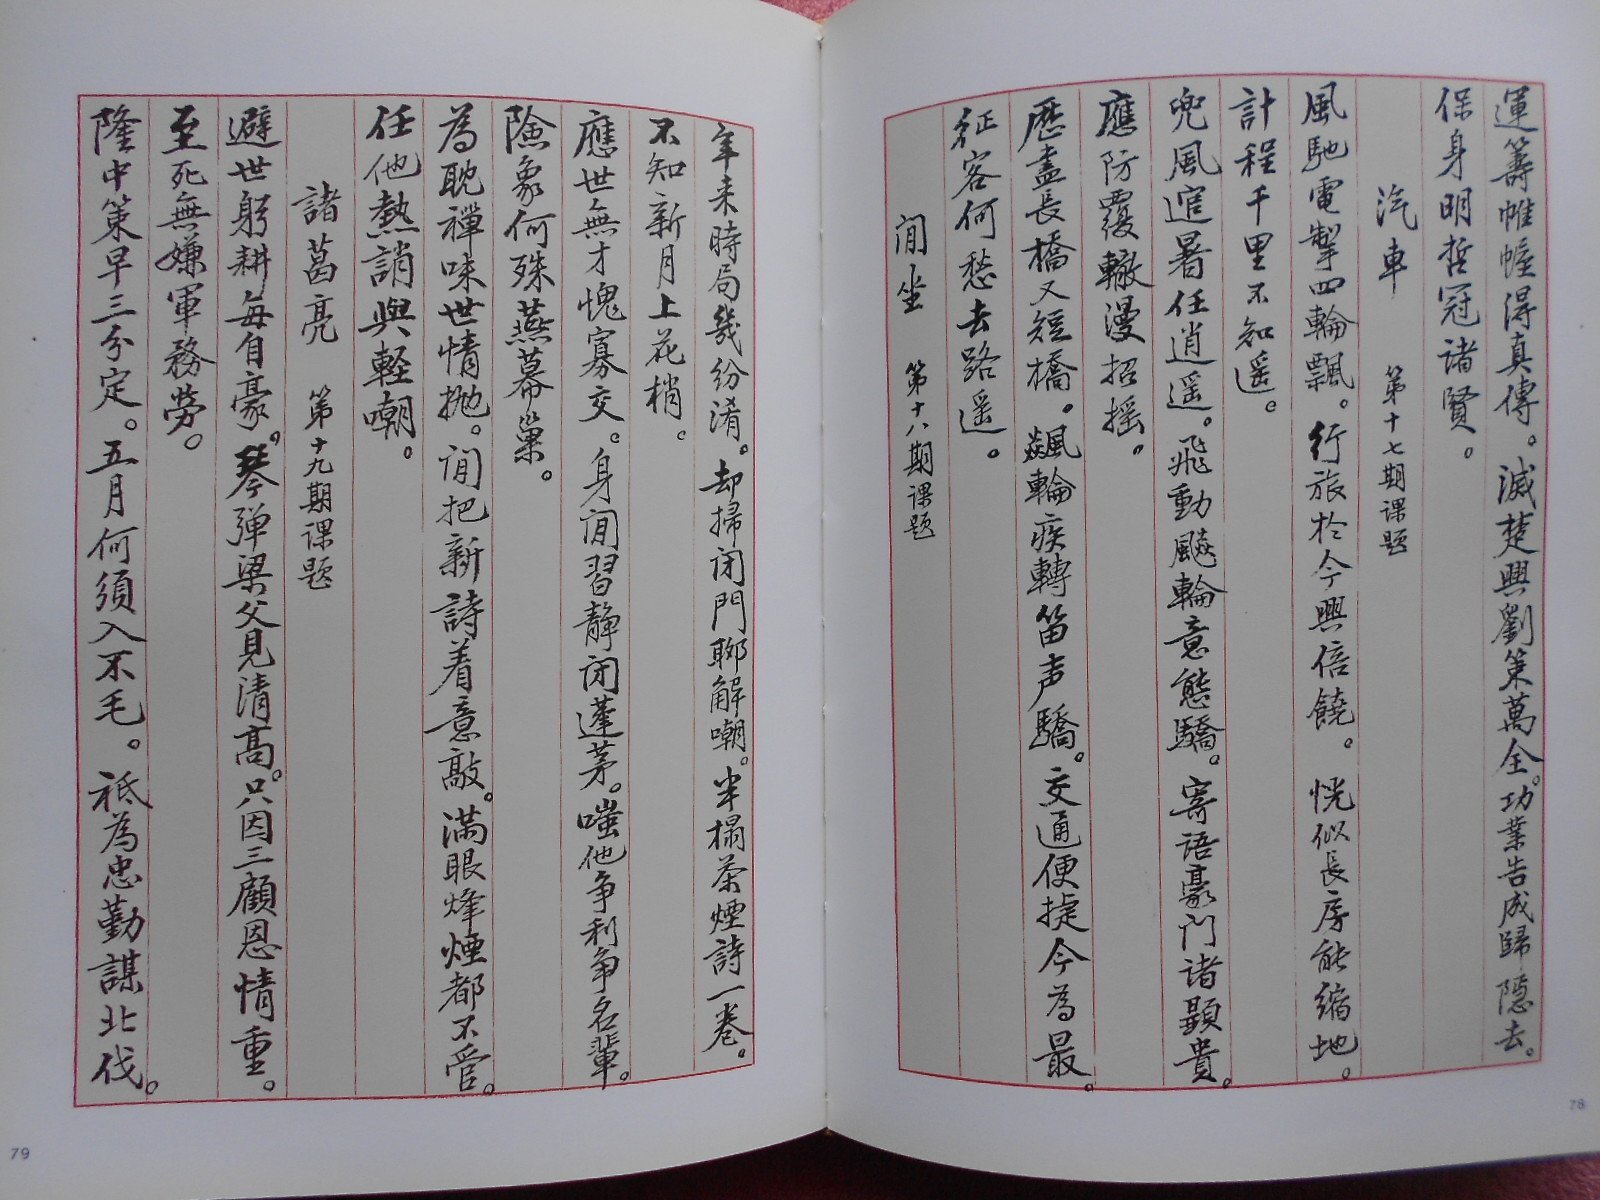 運籌帷幄得真傳。滅楚興劉策萬全。功業告成歸隱去。
保身明哲冠诸賢。
汽車 第十七期课题
風馳電掣四輪飄。行旅於今興倍饒。恍似長房能缩地。
計程千里不知遥。
兜風避暑任逍遥。飛動飈輪意態驕。寄语豪门诸顯貴。
應防覆轍漫招摇。
歷盡長橋又短橋。飈輪疾轉笛声驕。交通便捷今為最。
征客何愁去路遥。
閒坐 第十八期课题
年来時局幾纷淆。却掃闭門聊解嘲。半榻茶煙詩一卷。
不知新月上花梢。
應世無才愧寡交。身閒習静闭蓬茅。嗤他争利争名輩。
險象何殊燕幕巢。
為耽禪味世情抛。閒把新詩着意敲。满眼烽煙都不管。
任他熱誚與輕嘲。
諸葛亮 第十九期课题
避世躬耕每自豪。琴弹梁父見清高。只因三顧恩情重。
至死無嫌軍務勞。
隆中策早三分定。五月何須入不毛。祗為忠勤謀北伐。
79
78